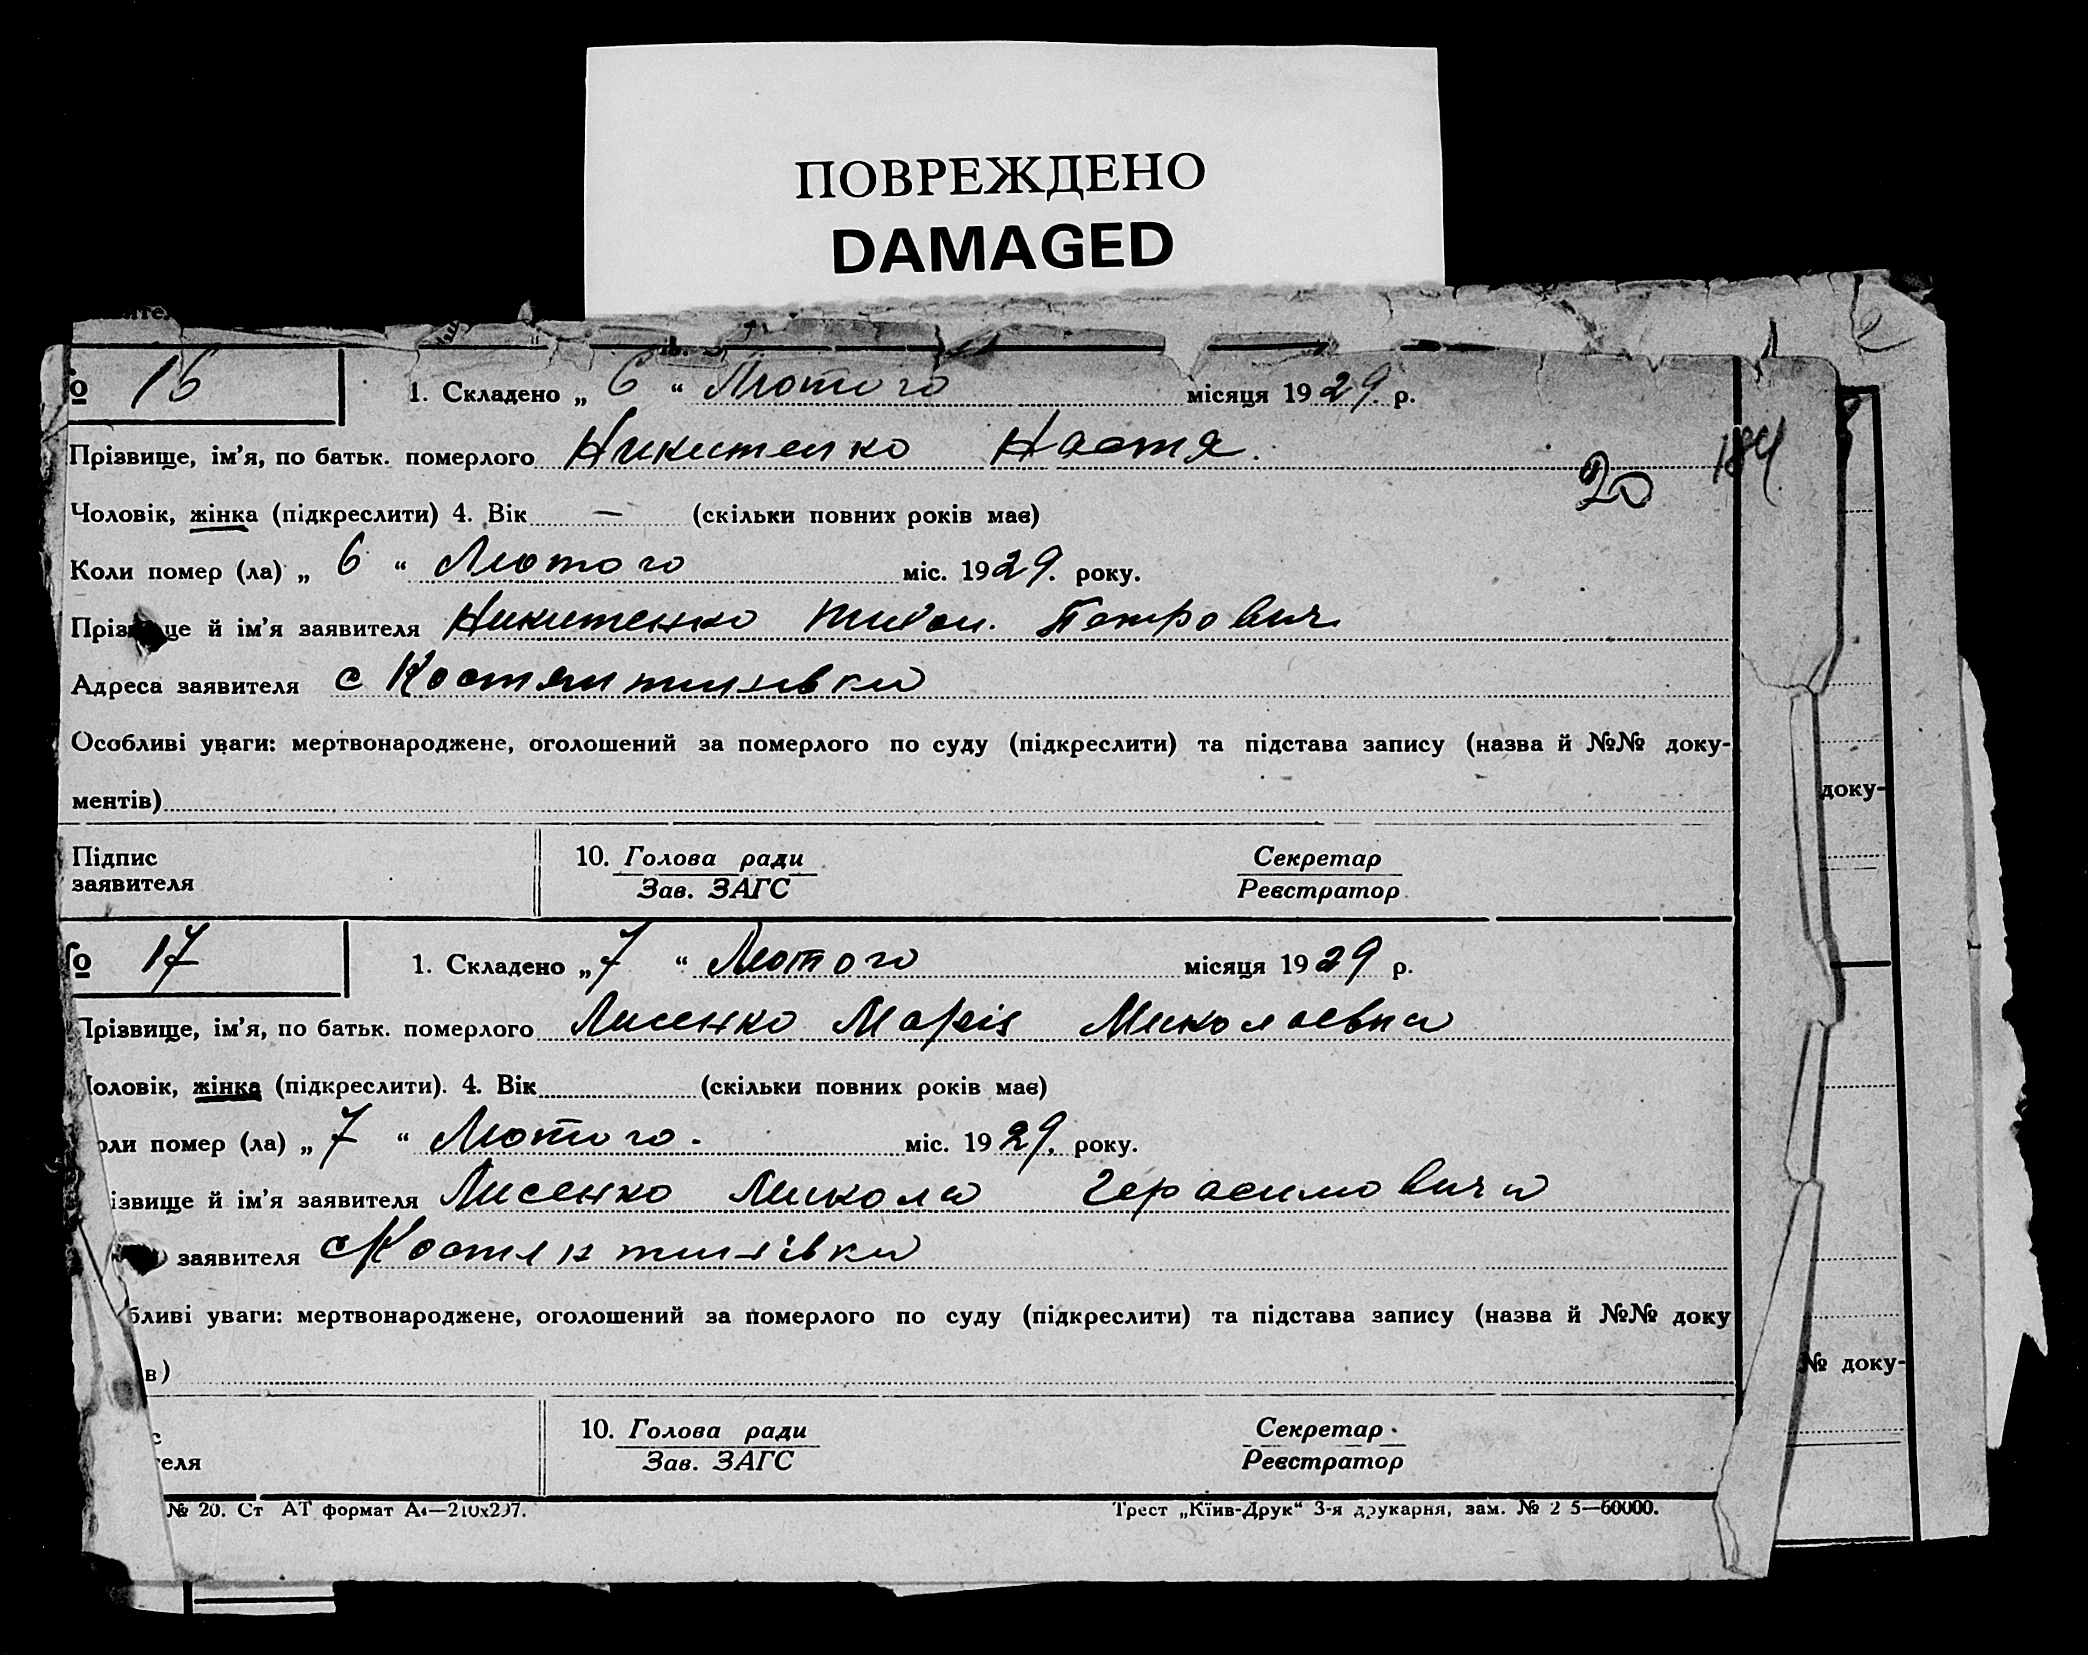 ПОВРЕЖДЕНО
DAMAGED
№ 16 1. Складено „ 6 “ Лютого місяця 1929. р.
Прізвище, ім’я, по батьк. померлого Никитенко Настя.
184
20
Чоловік, жінка (підкреслити) 4. Вік — (скільки повних років має)
Коли помер (ла) „ 6 “ Лютого міс. 1929. року.
Прізвище й ім’я заявителя Никитенко Тихон. Петрович
Адреса заявителя с Костянтинівки
Особливі уваги: мертвонароджене, оголошений за померлого по суду (підкреслити) та підстава запису (назва й №№ доку-
ментів)
доку-
Підпис
заявителя
10. Голова ради
Зав. ЗАГС
Секретар
Реєстратор
№ 17 1. Складено „ 7 “ Лютого місяця 1929 р.
Прізвище, ім’я, по батьк. померлого Лисенко Марія Миколаєвна
Чоловік, жінка (підкреслити). 4. Вік (скільки повних років має)
оли помер (ла) „ 7 “ Лютого. міс. 1929. року.
ізвище й ім’я заявителя Лисенко Микола Герасимовича
заявителя с Костянтинівки
бливі уваги: мертвонароджене, оголошений за померлого по суду (підкреслити) та підстава запису (назва й №№ доку
в)
№ доку-
с
теля
10. Голова ради
Зав. ЗАГС
Секретар
Реєстратор
№ 20. Ст АТ формат А4—210х297.
Трест „Київ-Друк“ 3-я друкарня, зам. № 2 5—60000.